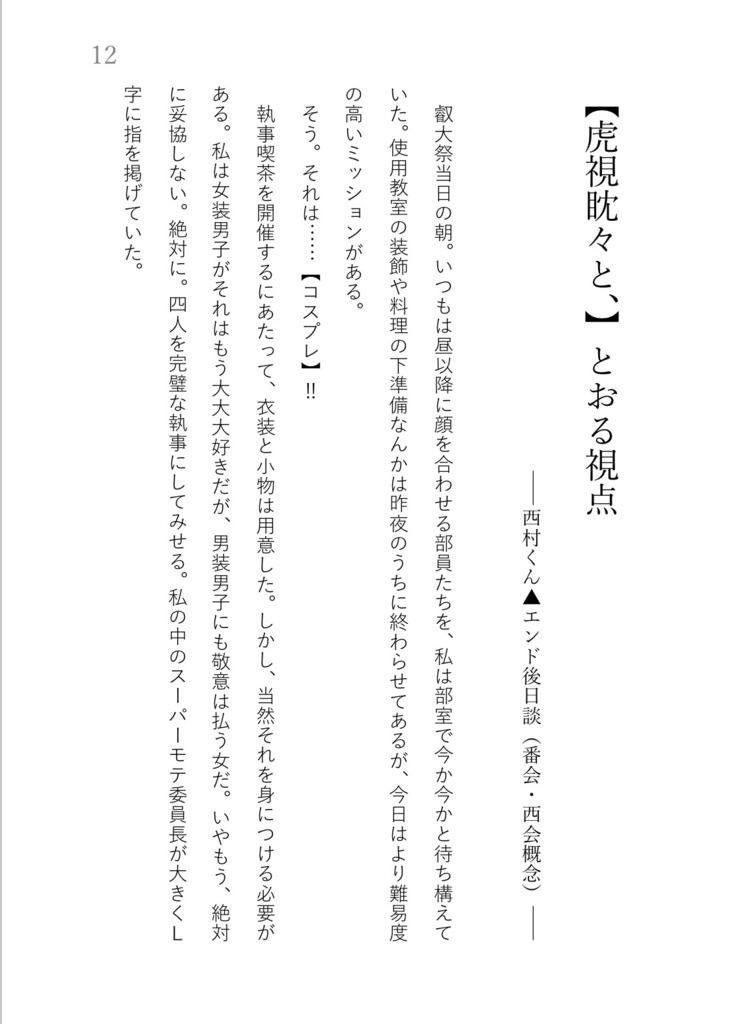 12
【虎視眈々と、】とおる視点
――西村くん▲エンド後日談（番会・西会概念）――
叡大祭当日の朝。いつもは昼以降に顔を合わせる部員たちを、私は部室で今か今かと待ち構えて
いた。使用教室の装飾や料理の下準備なんかは昨夜のうちに終わらせてあるが、今日はより難易度
の高いミッションがある。
そう。それは……【コスプレ】‼
執事喫茶を開催するにあたって、衣装と小物は用意した。しかし、当然それを身につける必要が
ある。私は女装男子がそれはもう大大大好きだが、男装男子にも敬意は払う女だ。いやもう、絶対
に妥協しない。絶対に。四人を完璧な執事にしてみせる。私の中のスーパーモテ委員長が大きくL
字に指を掲げていた。